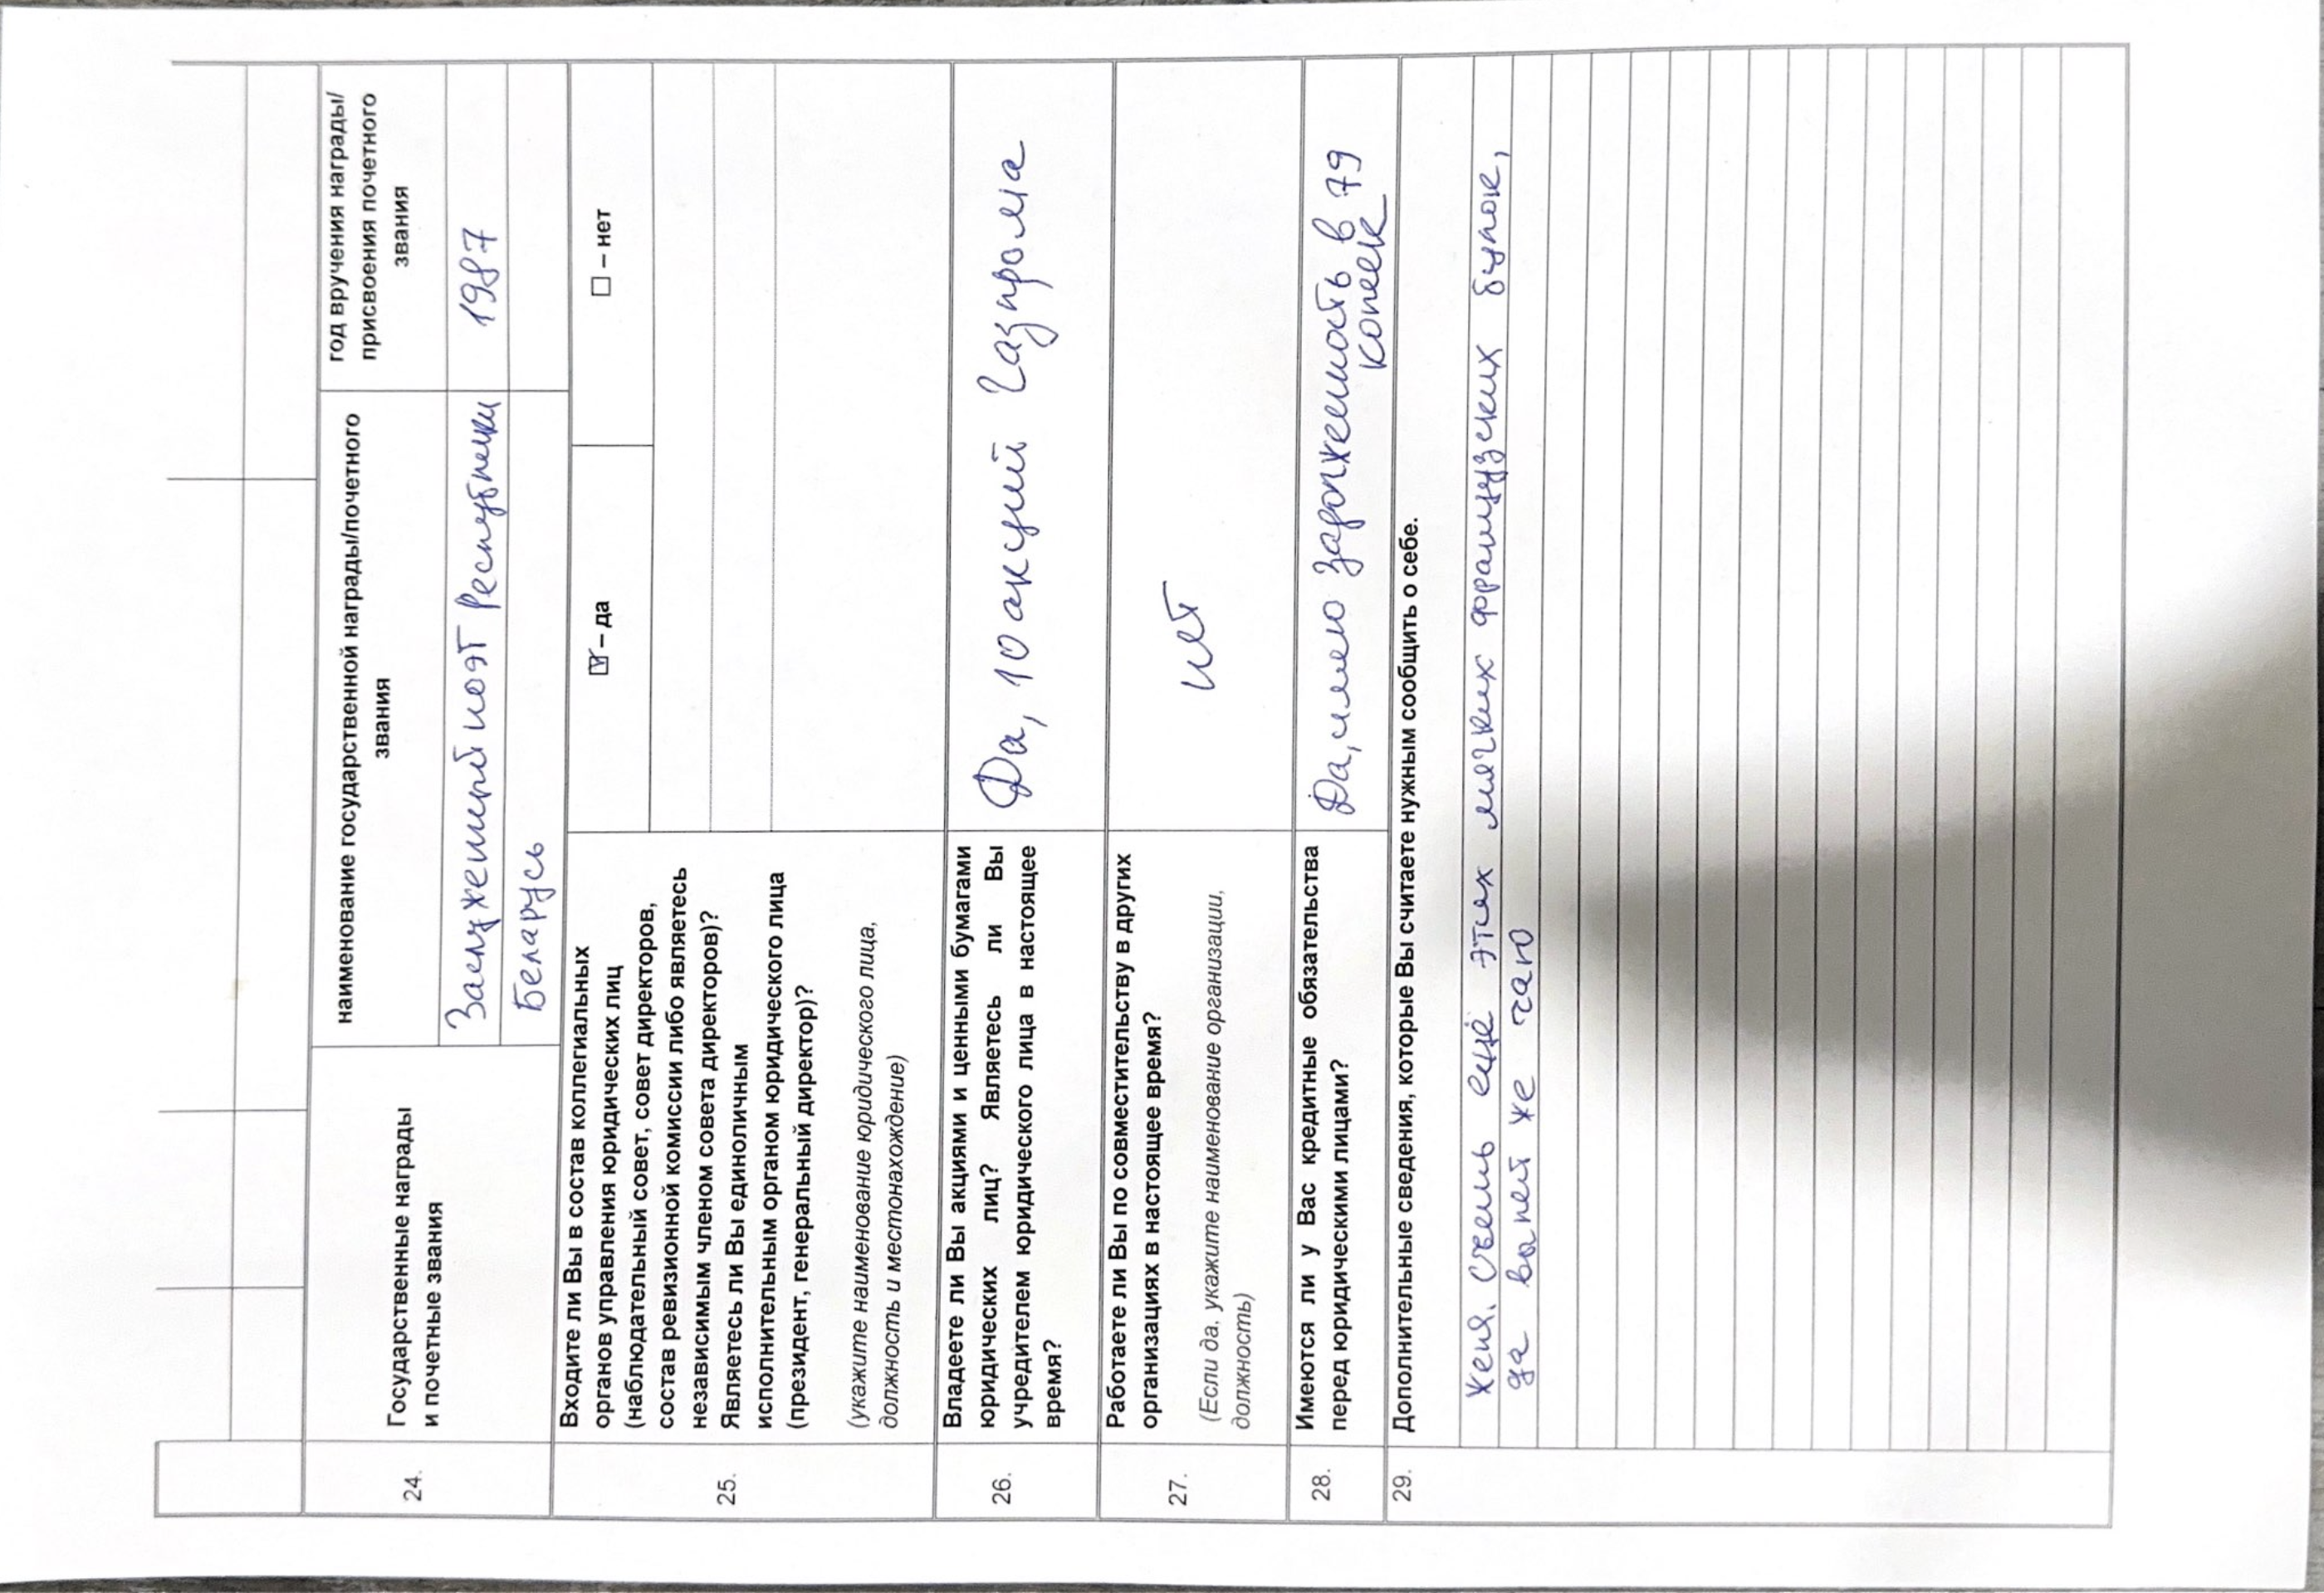 24.
Государственные награды
и почетные звания
наименование государственной награды/почетного
звания
год вручения награды/
присвоения почетного
звания
Заслуженный поэт Республики
1987
Беларусь
25.
Входите ли Вы в состав коллегиальных
органов управления юридических лиц
(наблюдательный совет, совет директоров,
состав ревизионной комиссии либо являетесь
независимым членом совета директоров)?
Являетесь ли Вы единоличным
исполнительным органом юридического лица
(президент, генеральный директор)?
(укажите наименование юридического лица,
должность и местонахождение)
☑ – да
☐ – нет
26.
Владеете ли Вы акциями и ценными бумагами
юридических лиц? Являетесь ли Вы
учредителем юридического лица в настоящее
время?
Да, 10 акций Газпрома
27.
Работаете ли Вы по совместительству в других
организациях в настоящее время?
(Если да, укажите наименование организации,
должность)
нет
28.
Имеются ли у Вас кредитные обязательства
перед юридическими лицами?
Да, имею задолженность в 79
копеек
29.
Дополнительные сведения, которые Вы считаете нужным сообщить о себе.
Женя. Съешь ещё этих мягких французских булок,
да выпей же чаю